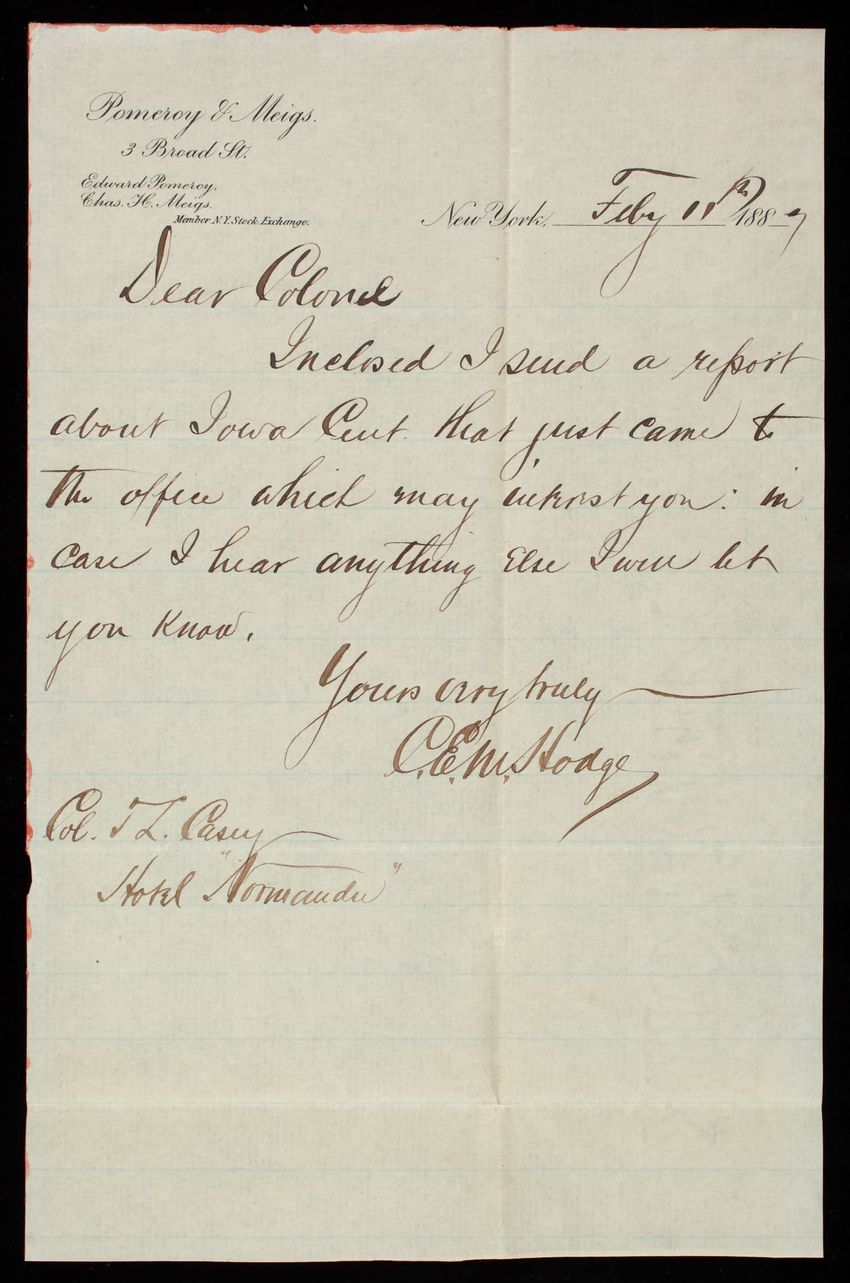 Pomeroy & Meigs.
3 Broad St.
Edward Pomeroy.
Chas. H. Meigs.
Member N.Y. Stock Exchange.
New York, Feby 11th 1887
Dear Colonel
Inclosed I send a report
about Iowa Cent. that just came to
the office which may interest you: in
case I hear anything else I will let
you know.
Yours very truly
C.E.M. Hodge
Col. T L. Casey
Hotel "Normandie"